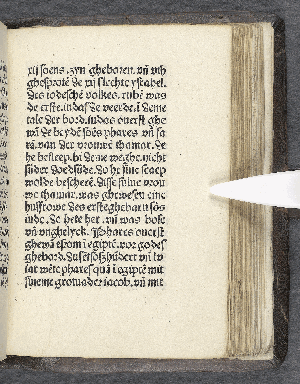 xij soens. zyn gheboren. vñ vth
ghesprotē de xij slechte vñ stabel.
des iodeschē volkes. rubē was
de erste. iudas de veerde. i deme
tale der bord. iudas overst ghe
wā de beydē soēs phares vñ sa
rā. van der vrouwē thamar. de
he besleep. bi deme weghe. nicht
sūder doedsūde. do he sine scaep
wolde bescherē. disse sine vrou
we thamar. was ghewesen ene
husfrowe des ersteghebarē sōs
iude. de hete her. vñ was bose
vñ vnghelyck. phares overst
ghewā esrom i egiptē. vor godes
ghebord. dusēt soßhūdert vñ lv
iar wēte phares quā i egiptē mit
syneme grotuader iacob. vñ mit